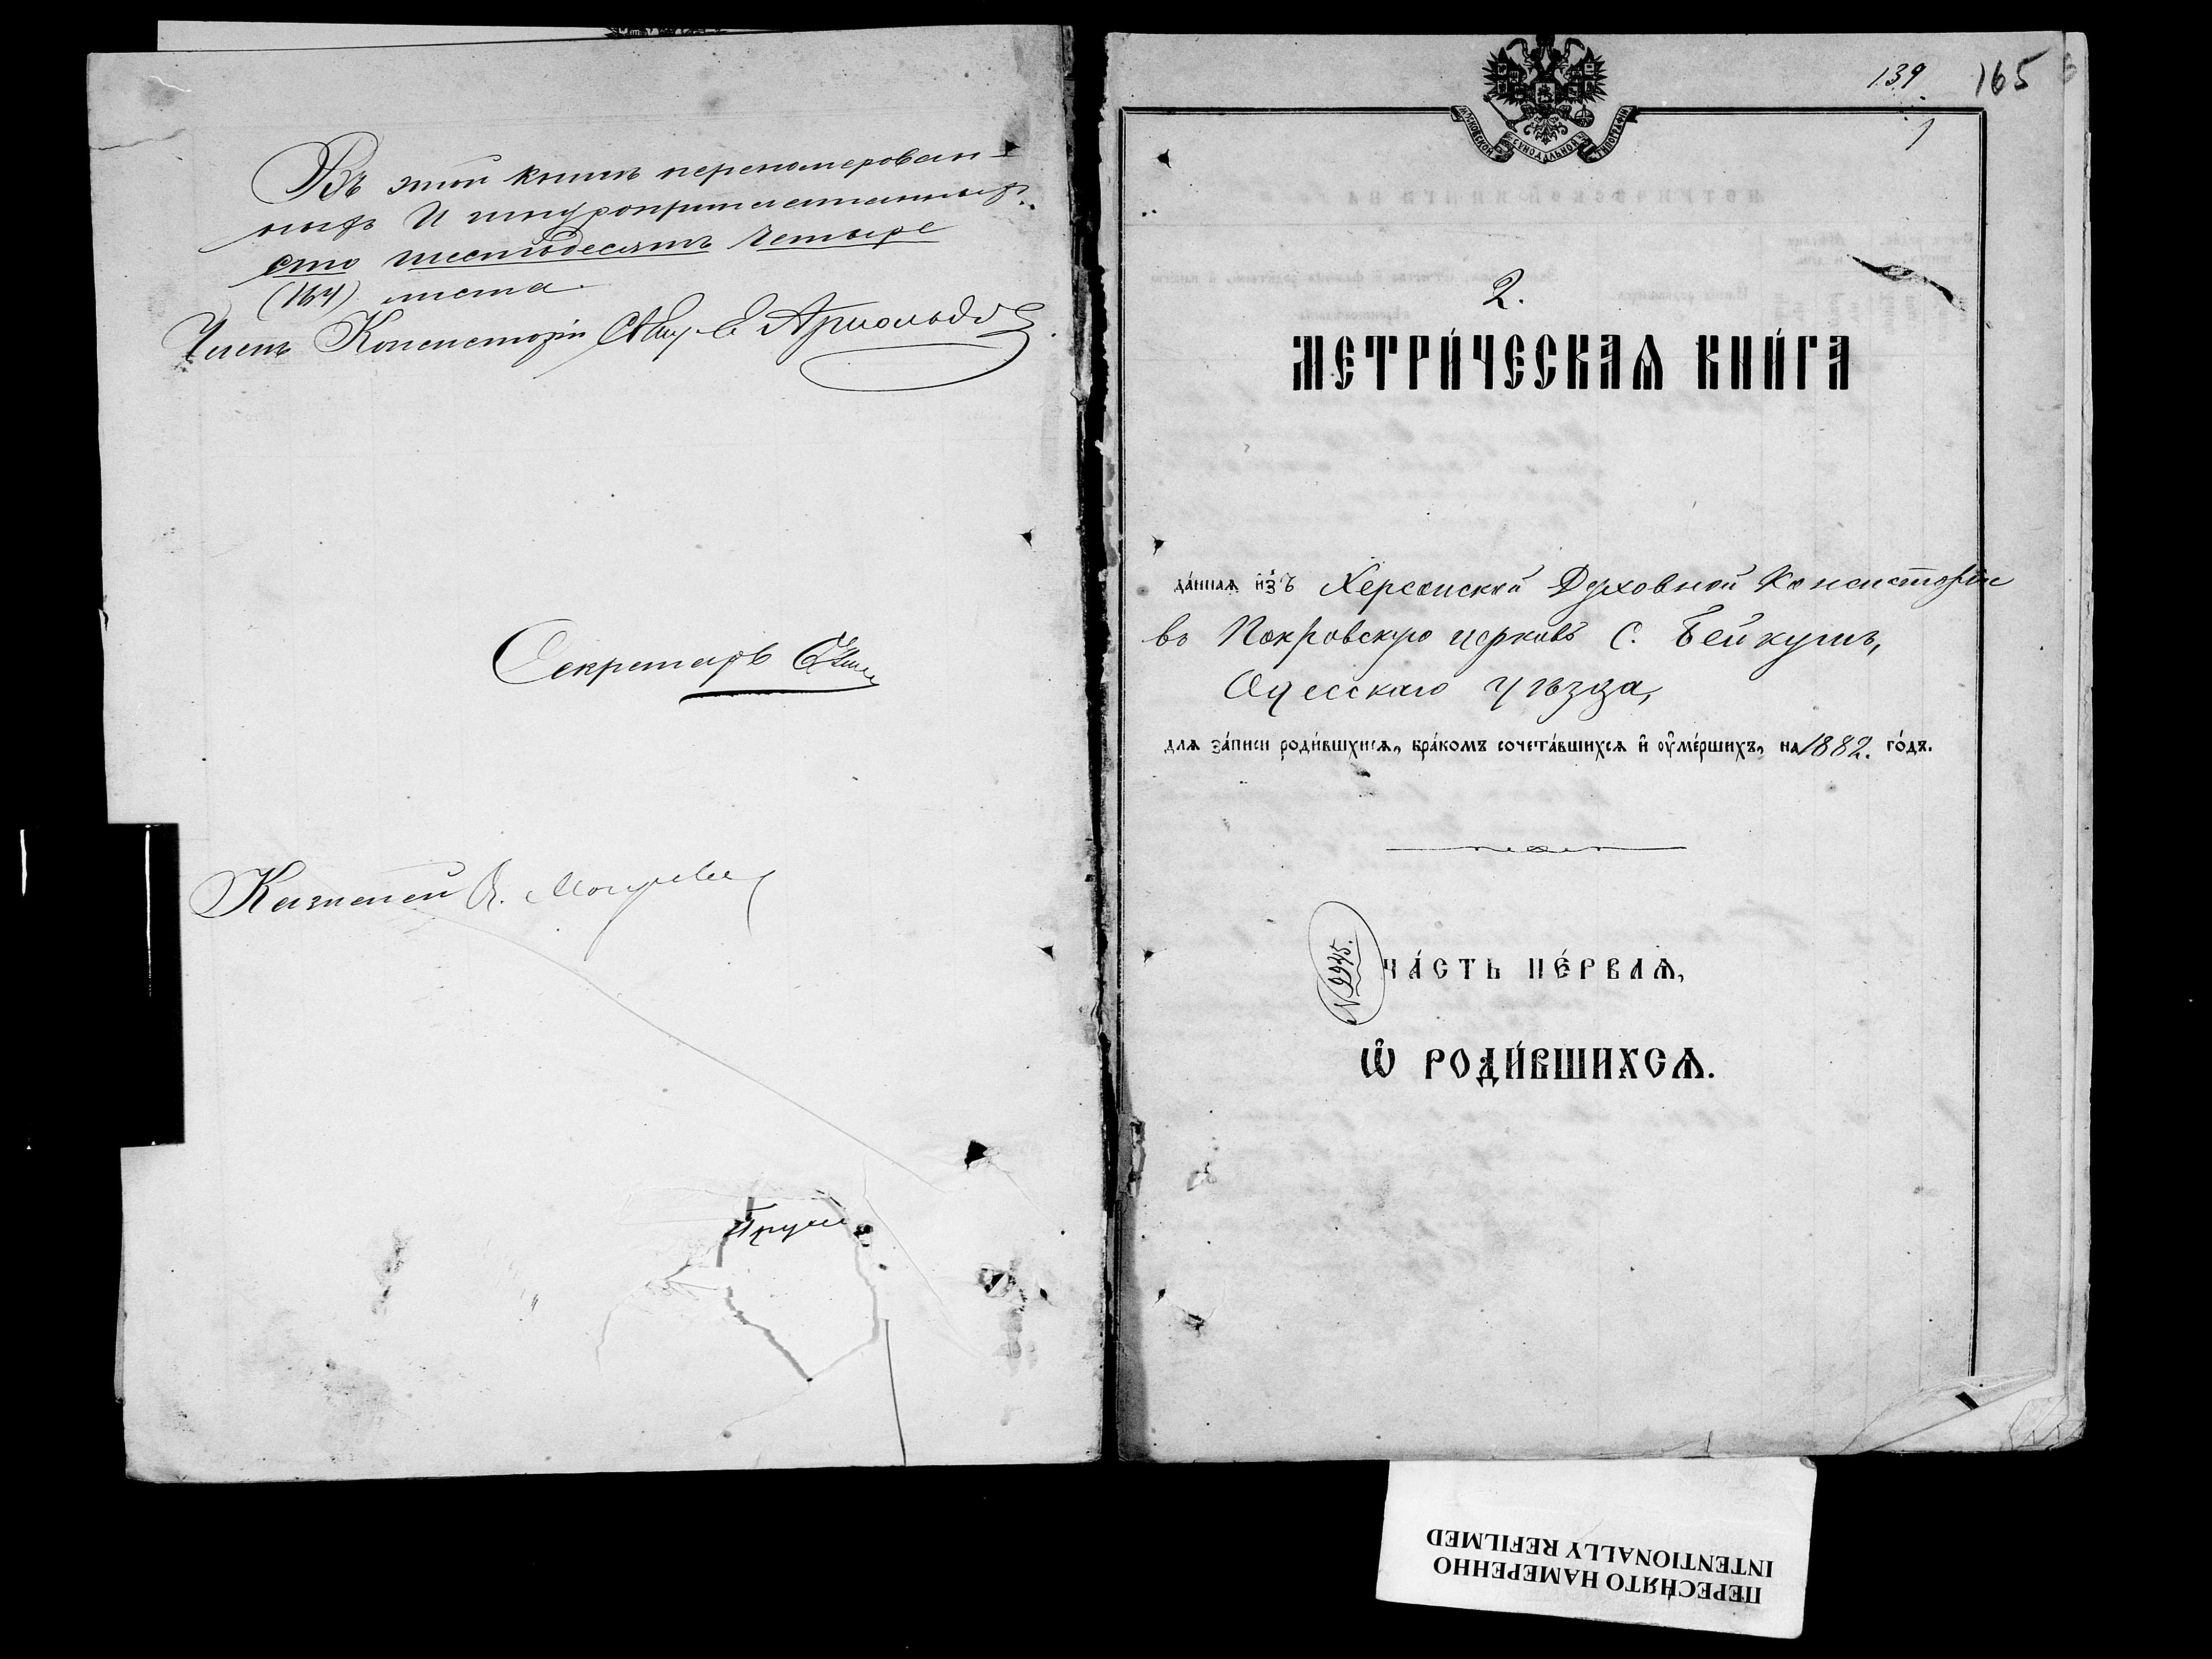 Въ этой книгѣ перенумерован-
ныхъ и шнуроприпечатанныхъ
сто шестьдесятъ четыре
(164) листа.
Членъ Консисторіи Арнольдовъ
Секретарь
Казначей
139 165
1
МОСКОВСКОЙ СѴНОДАЛЬНОЙ ТИПОГРАФІИ
2.
МЕТРИ́ЧЕСКАѦ КНИ́ГА
да́ннаѧ и҆з̾ъ Херсонской Духовной Консисторіи
въ Покровскую церковь с. Бейкушъ,
Одесскаго уѣзда,
длѧ за́писи роди́вшихсѧ, бра́комъ сочета́вшихсѧ и҆ ᲂу҆ме́ршихъ, на 1882. го́дъ.
№ 2995.
ЧА́СТЬ ПЕ́РВАѦ,
Ѽ РОДИ́ВШИХСѦ.
ПЕРЕСНЯТО НАМЕРЕННО
INTENTIONALLY REFILMED